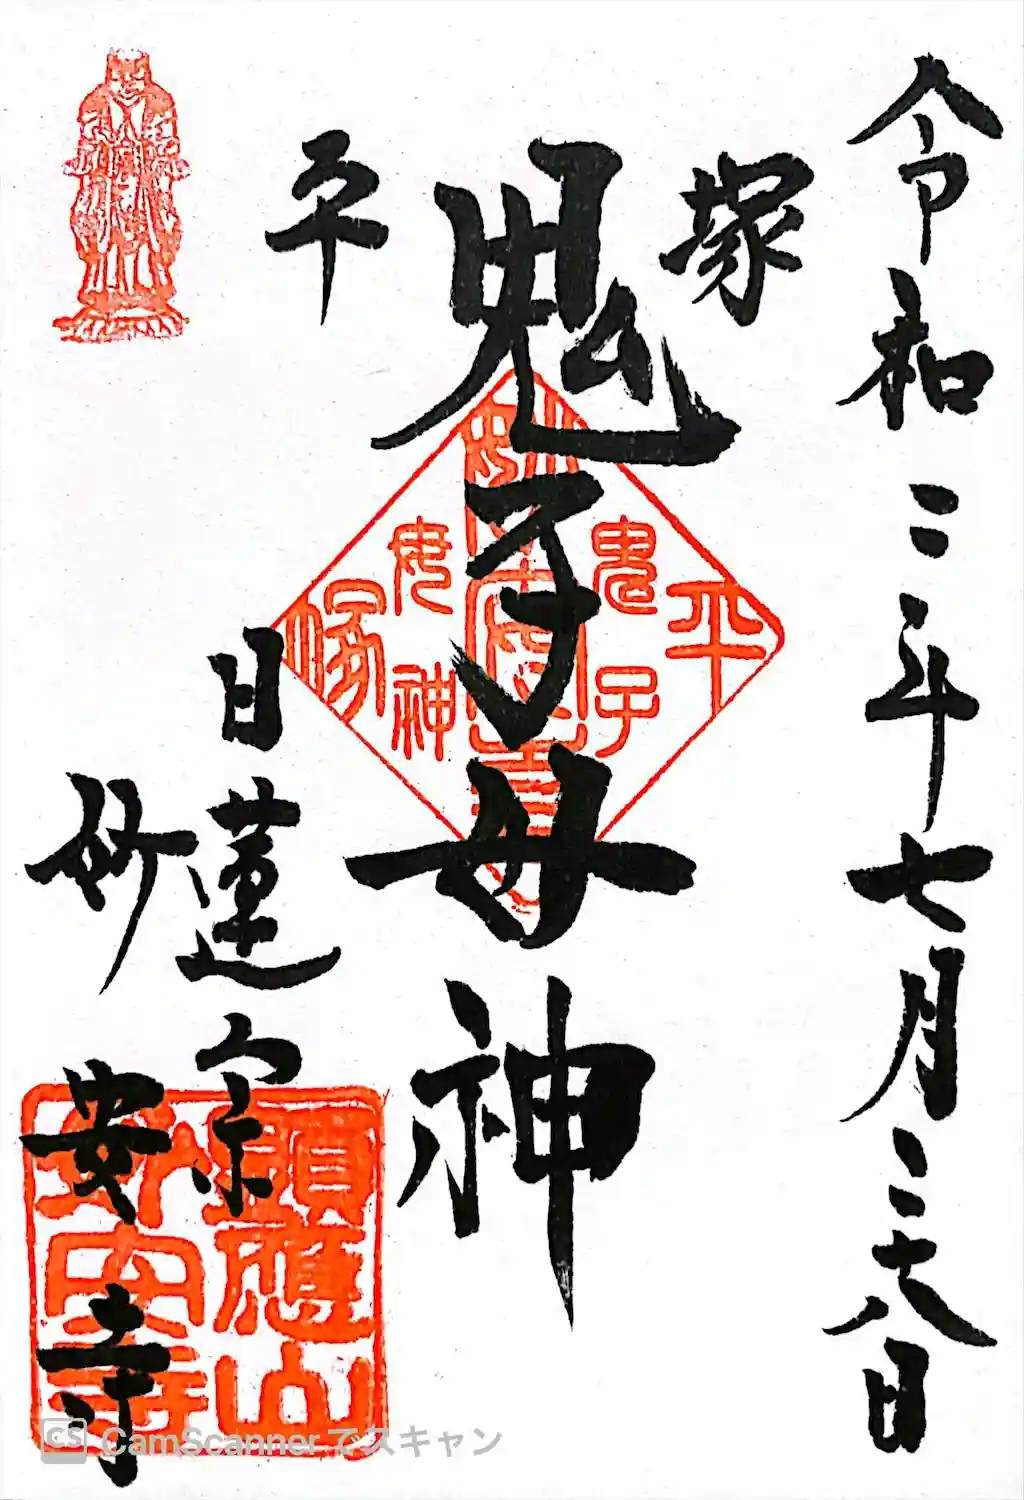 令和二年七月二十八日
塚
鬼子母神
平
日蓮宗
妙安寺
平
鬼子
母神
塚
願應山
妙安寺
CS CamScanner でスキャン